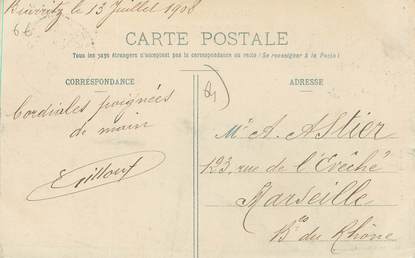 Biarritz le 13 Juillet 1908
6€
CARTE POSTALE
Tous les pays étrangers n'acceptent pas la correspondance au recto (Se renseigner à la Poste)
CORRESPONDANCE
Cordiales poignées
de main
ADRESSE
Mr A. Astier
123, rue de l'Evêché
Marseille
Bes du Rhône